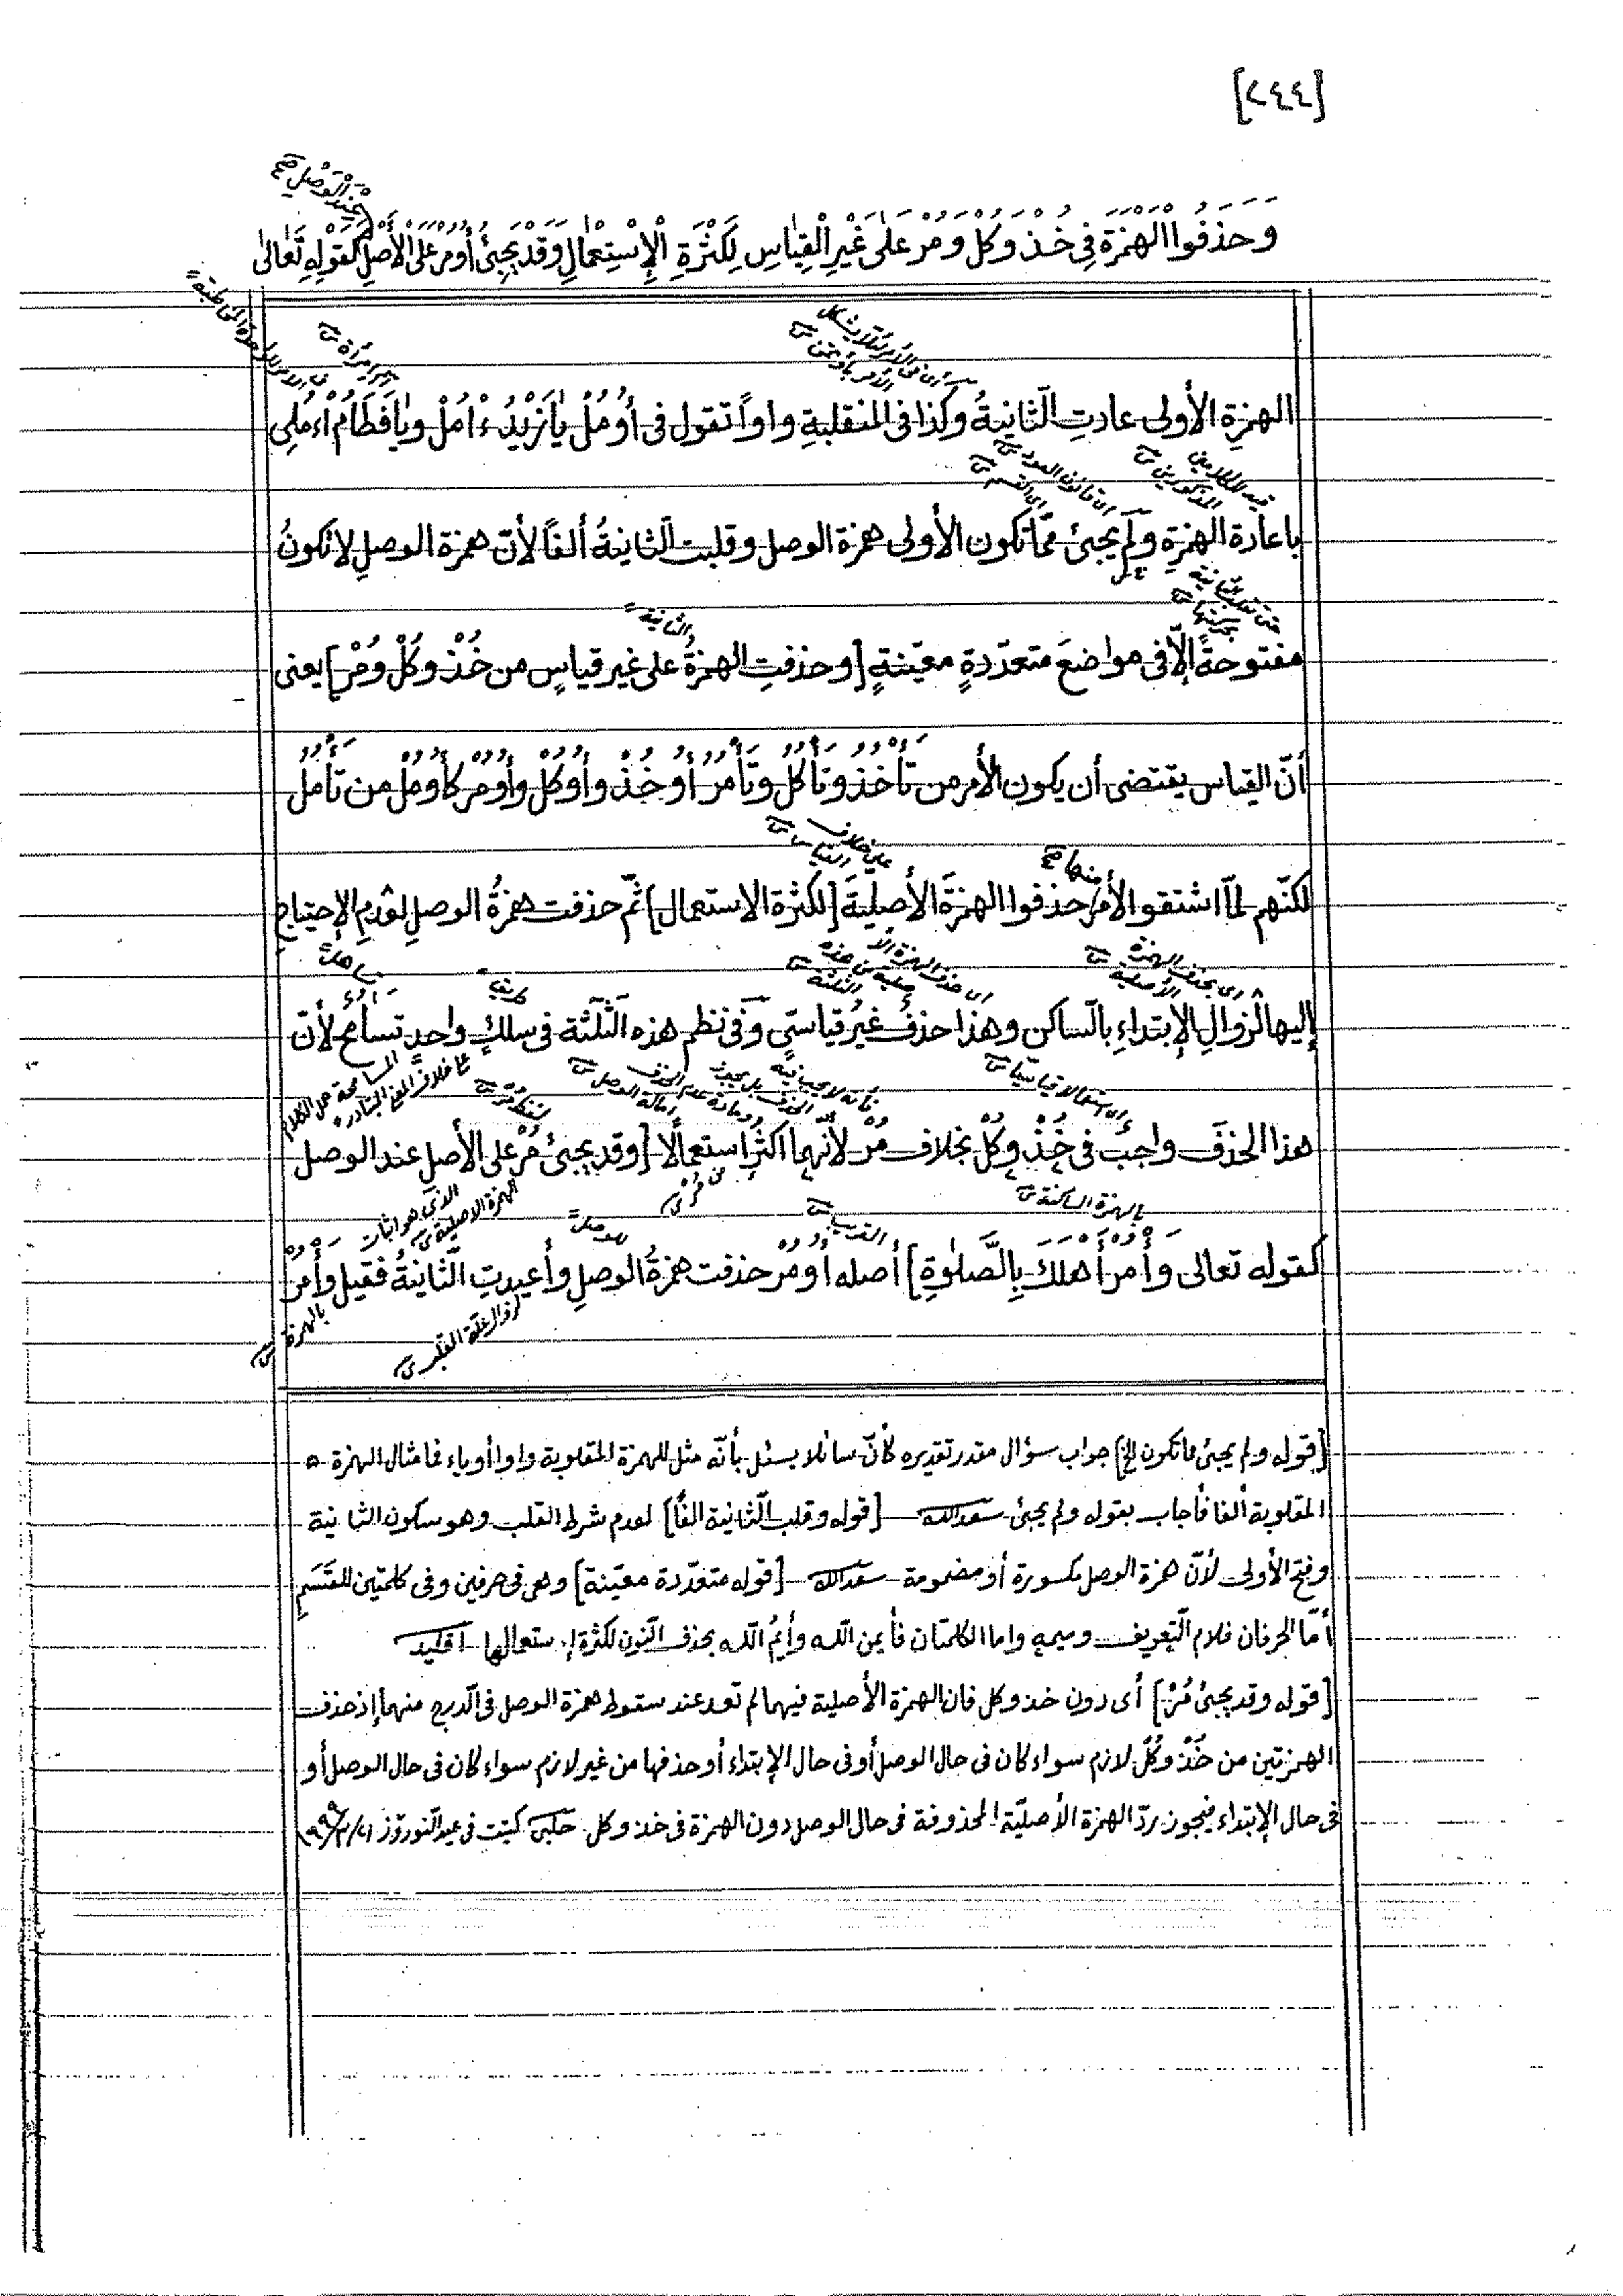 [٢٤٤]
عِنْدَ الْوَصْلِ صح
وَحَذَفُوا الْهَمْزَةَ فِي خُذْ وَكُلْ وَمُرْ عَلٰى غَيْرِ الْقِيٰاسِ لِكَثْرَةِ الْإِسْتِعْمٰالِ وَقَدْ يَجِيْئُ أُومُرْ عَلَى الْأَصْلِ كَقَوْلِهِ تَعٰالىٰ
الهمزةِ الأولى عادتِ الثّانيةُ وكذا فى المنقلبةِ واواً تقول فى أُوْمُلْ يٰازَيْدُ ءْامُلْ ويٰافَطَامُ اْءمُلِى
باعادة الهمزةِ ولم يجئ ممّا تكون الأولى همزة الوصل وقلبت الثّانيةُ ألفاً لأنّ همزة الوصلِ لا تكونُ
والثانية
مفتوحةً إلّا فى مواضعَ متعدّدةٍ معيّنةٍ [وحذفتِ الهمزةُ على غير قياسٍ من خُذْ وكُلْ ومُرْ] يعنى
أنّ القياس يقتضى أن يكون الأمر من تَأْخُذُ وتَأْكُلُ وتَأْمُرُ أُوْخُذْ وأُوْكُلْ وأُوْمُرْ كأُوْمُلْ من تَأْمُلُ
على خلاف القياس
منها صح
لكنّهم لمّا اشتقو الأمر حذفوا الهمزةَ الأصليةَ [لكثرة الاستعمال] ثمّ حذفت همزةُ الوصلِ لعدمِ الإحتياج
أى بحذف الهمزة الأصلية
إليها لزوالِ الإبتداءِ بالسّاكن وهذا حذفٌ غيرُ قياسىّ وفى نظم هذه الثّلثة فى سلكٍ واحدٍ تسامحٌ لأنّ
أى استعمالا قياسيّا
هذا الحذفَ واجبٌ فى خُذْ وكُلْ بخلاف مُرْ لأنّهما اكثرُ استعمالًا [وقد يجيئ مُرْ على الأصلِ عند الوصل
بالهمزة الساكنة
الذى هو اثبات الهمزة الاصلية
كقوله تعالى وَأْمُرْ أَهْلَكَ بِالصَّلٰوةِ] أصله أُوْمُرْ حذفت همزةُ الوصلِ وأُعيدتِ الثّانيةُ فقيل وأْمُرْ
لزوال علّة القلب
بالهمزة
[قوله ولم يجئ ما تكون الخ] جواب سؤال مقدر تقديره كأنّ سائلا يسئل بأنّه مثل للهمزة المقلوبة واوا أو ياء فما مثال الهمزة
المقلوبة ألفا فأجاب بقوله ولم يجئ سعدالله [قوله وقلب الثّانية الفًا] لعدم شرط القلب وهو سكون الثانية
وفتح الأولى لأنّ همزة الوصل مكسورة أو مضمومة سعدالله [قوله متعدّدة معيّنة] وهى فى حرفين وفى كلمتين للقَسَمِ
أمّا الحرفان فلام التّعريف وميمه واما الكلمتان فأيمن اللّه وأيمُ اللّه بحذف النّون لكثرة إستعمالها اقليد
[قوله وقد يجيئ مُرْ] أى دون خذ وكل فان الهمزة الأصلية فيهما لم تعد عند سقوط همزة الوصل فى الدّرج منهما إذ حذف
الهمزتين من خُذْ وكُلْ لازم سواء كان فى حال الوصل أو فى حال الإبتداء أو حذفها من غير لازم سواء كان فى حال الوصل أو
فى حال الإبتداء فيجوز ردّ الهمزة الأصليّة المحذوفة فى حال الوصل دون الهمزة فى خذ وكل حلبى كتبت فى عيد النوروز